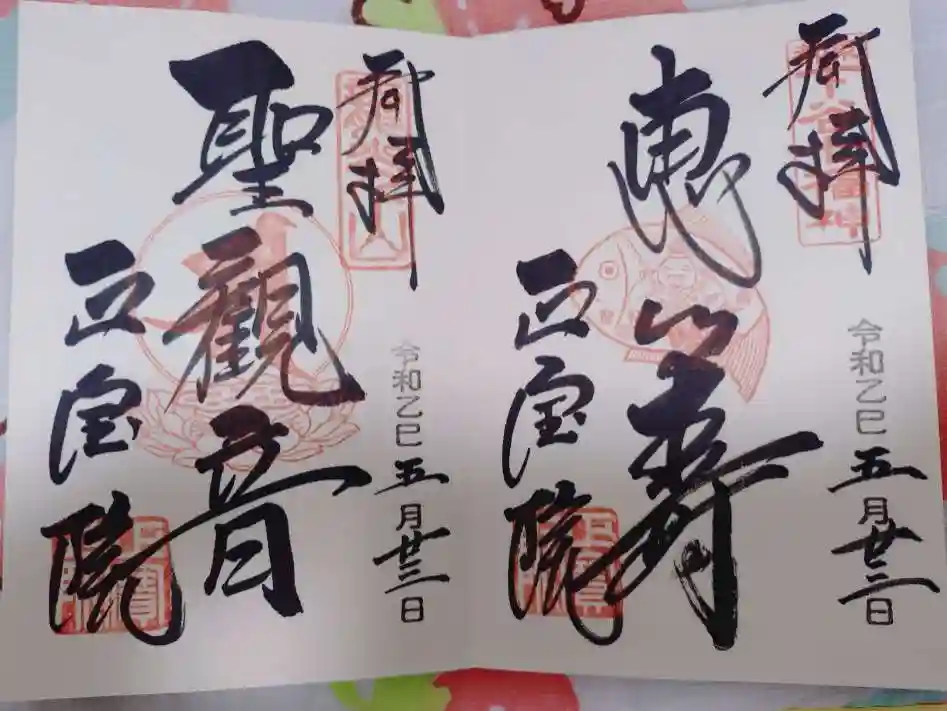 奉拝
惠比寿
令和乙巳五月廿三日
正宝院
奉拝
聖觀音
令和乙巳五月廿三日
正宝院